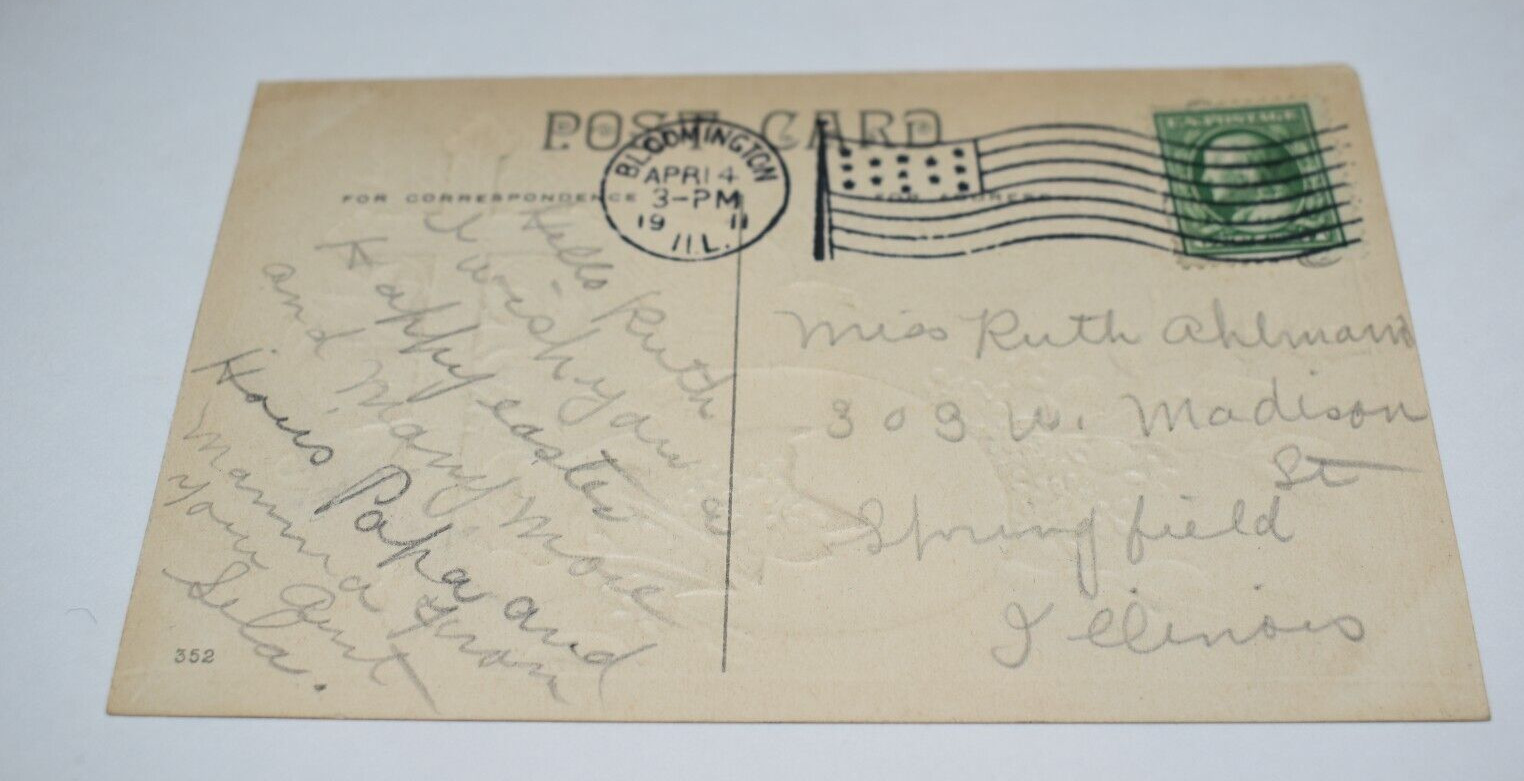 POST CARD
FOR CORRESPONDENCE
FOR ADDRESS
BLOOMINGTON
APR 14
3-PM
19 11
ILL.
U.S. POSTAGE
Hello Ruth
I wish you a
Happy easter
and Many More
How's Papa and
Mamma from
your Aunt
Sela.
352
Miss Ruth Ahlmann
303 W. Madison
St
Springfield
Illinois